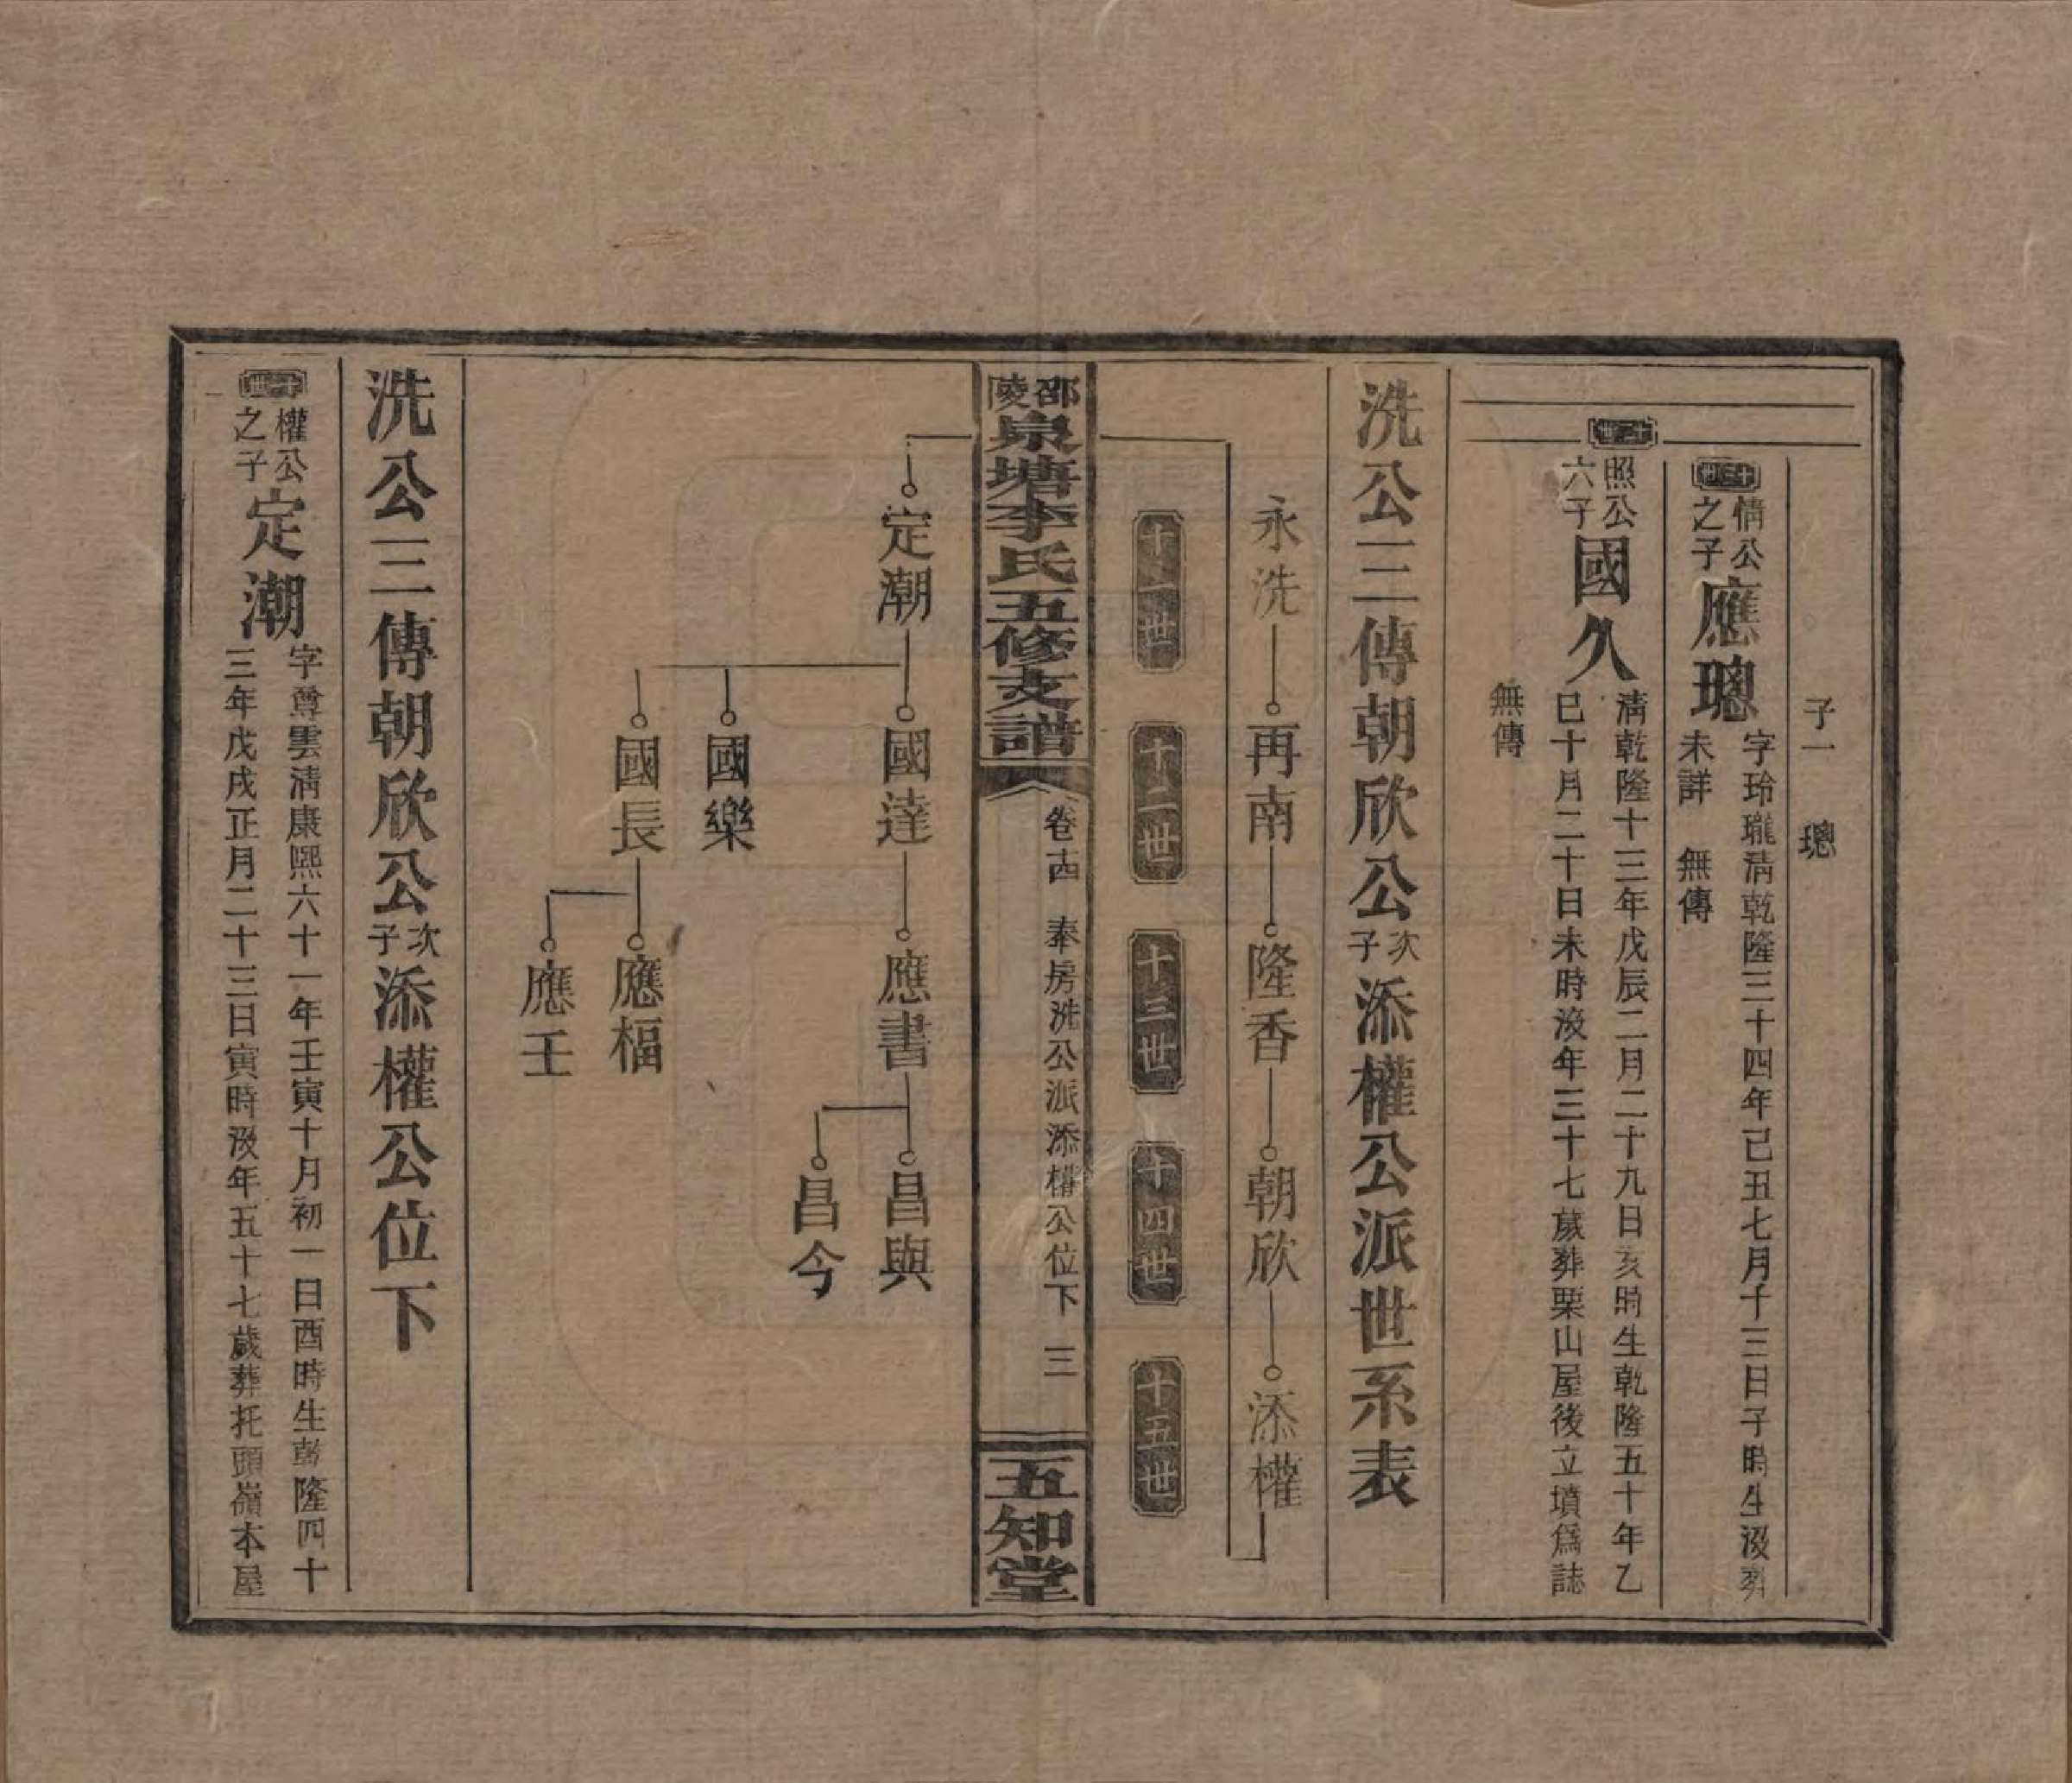 子一　璁
十三世
情公之子
應璁
字玲瓏清乾隆三十四年己丑七月十三日子時生歿葬
未詳　無傳
十二世
照公六子
國久
清乾隆十三年戊辰二月二十九日亥時生乾隆五十年乙
巳十月二十日未時歿年三十七歲葬栗山屋後立墳爲誌
無傳
洗公三傳朝欣公次子添權公派世系表
永洗　再南　隆香　朝欣　添權
十一世　十二世　十三世　十四世　十五世
邵陵泉塘李氏五修支譜
卷十四　奉房洗公派添權公位下　三
五知堂
定潮　國達　應書　昌與
昌今
國樂
國長　應福
應壬
洗公三傳朝欣公次子添權公位下
十一世
權公之子
定潮
字尊雲清康熙六十一年壬寅十月初一日酉時生乾隆四十
三年戊戌正月二十三日寅時歿年五十七歲葬托頭嶺本屋